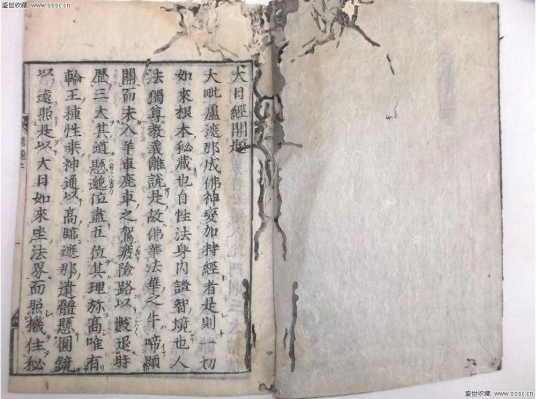 盛世收藏 www.sssc.cn
盛世收藏 www.sssc.cn
大日經開題
大毗盧遮那成佛神變加持經者是則一切
如來根本秘藏也自性法身內證智境也人
法獨尊教義離說是故佛華法華之牛啼顯
開而未入羊車鹿車之駕疲險路以數退時
歷三大其道懸邈位盡五位其理弥高唯有
輪王種性乘神通以高臨遮那遺體懸圓鏡
以遠照是以大日如來坐法界而照機住秘
盛世收藏 www.sssc.cn